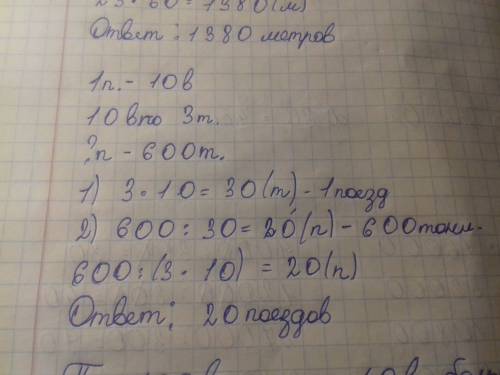 23 · 60 = 1380 (м)
Ответ : 1380 метров
1п. - 10в
10в по 3т.
?п - 600т.
1) 3 · 10 = 30 (т) - 1 поезд
2) 600 : 30 = 20 (п) - 600 тонн.
600 : (3 · 10) = 20 (п)
Ответ: 20 поездов